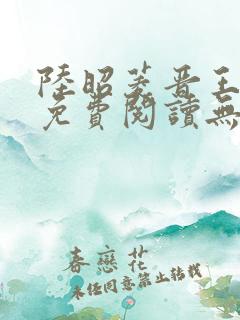 陸昭菱晉王
免費閱讀無
春戀花
未经同意禁止转载